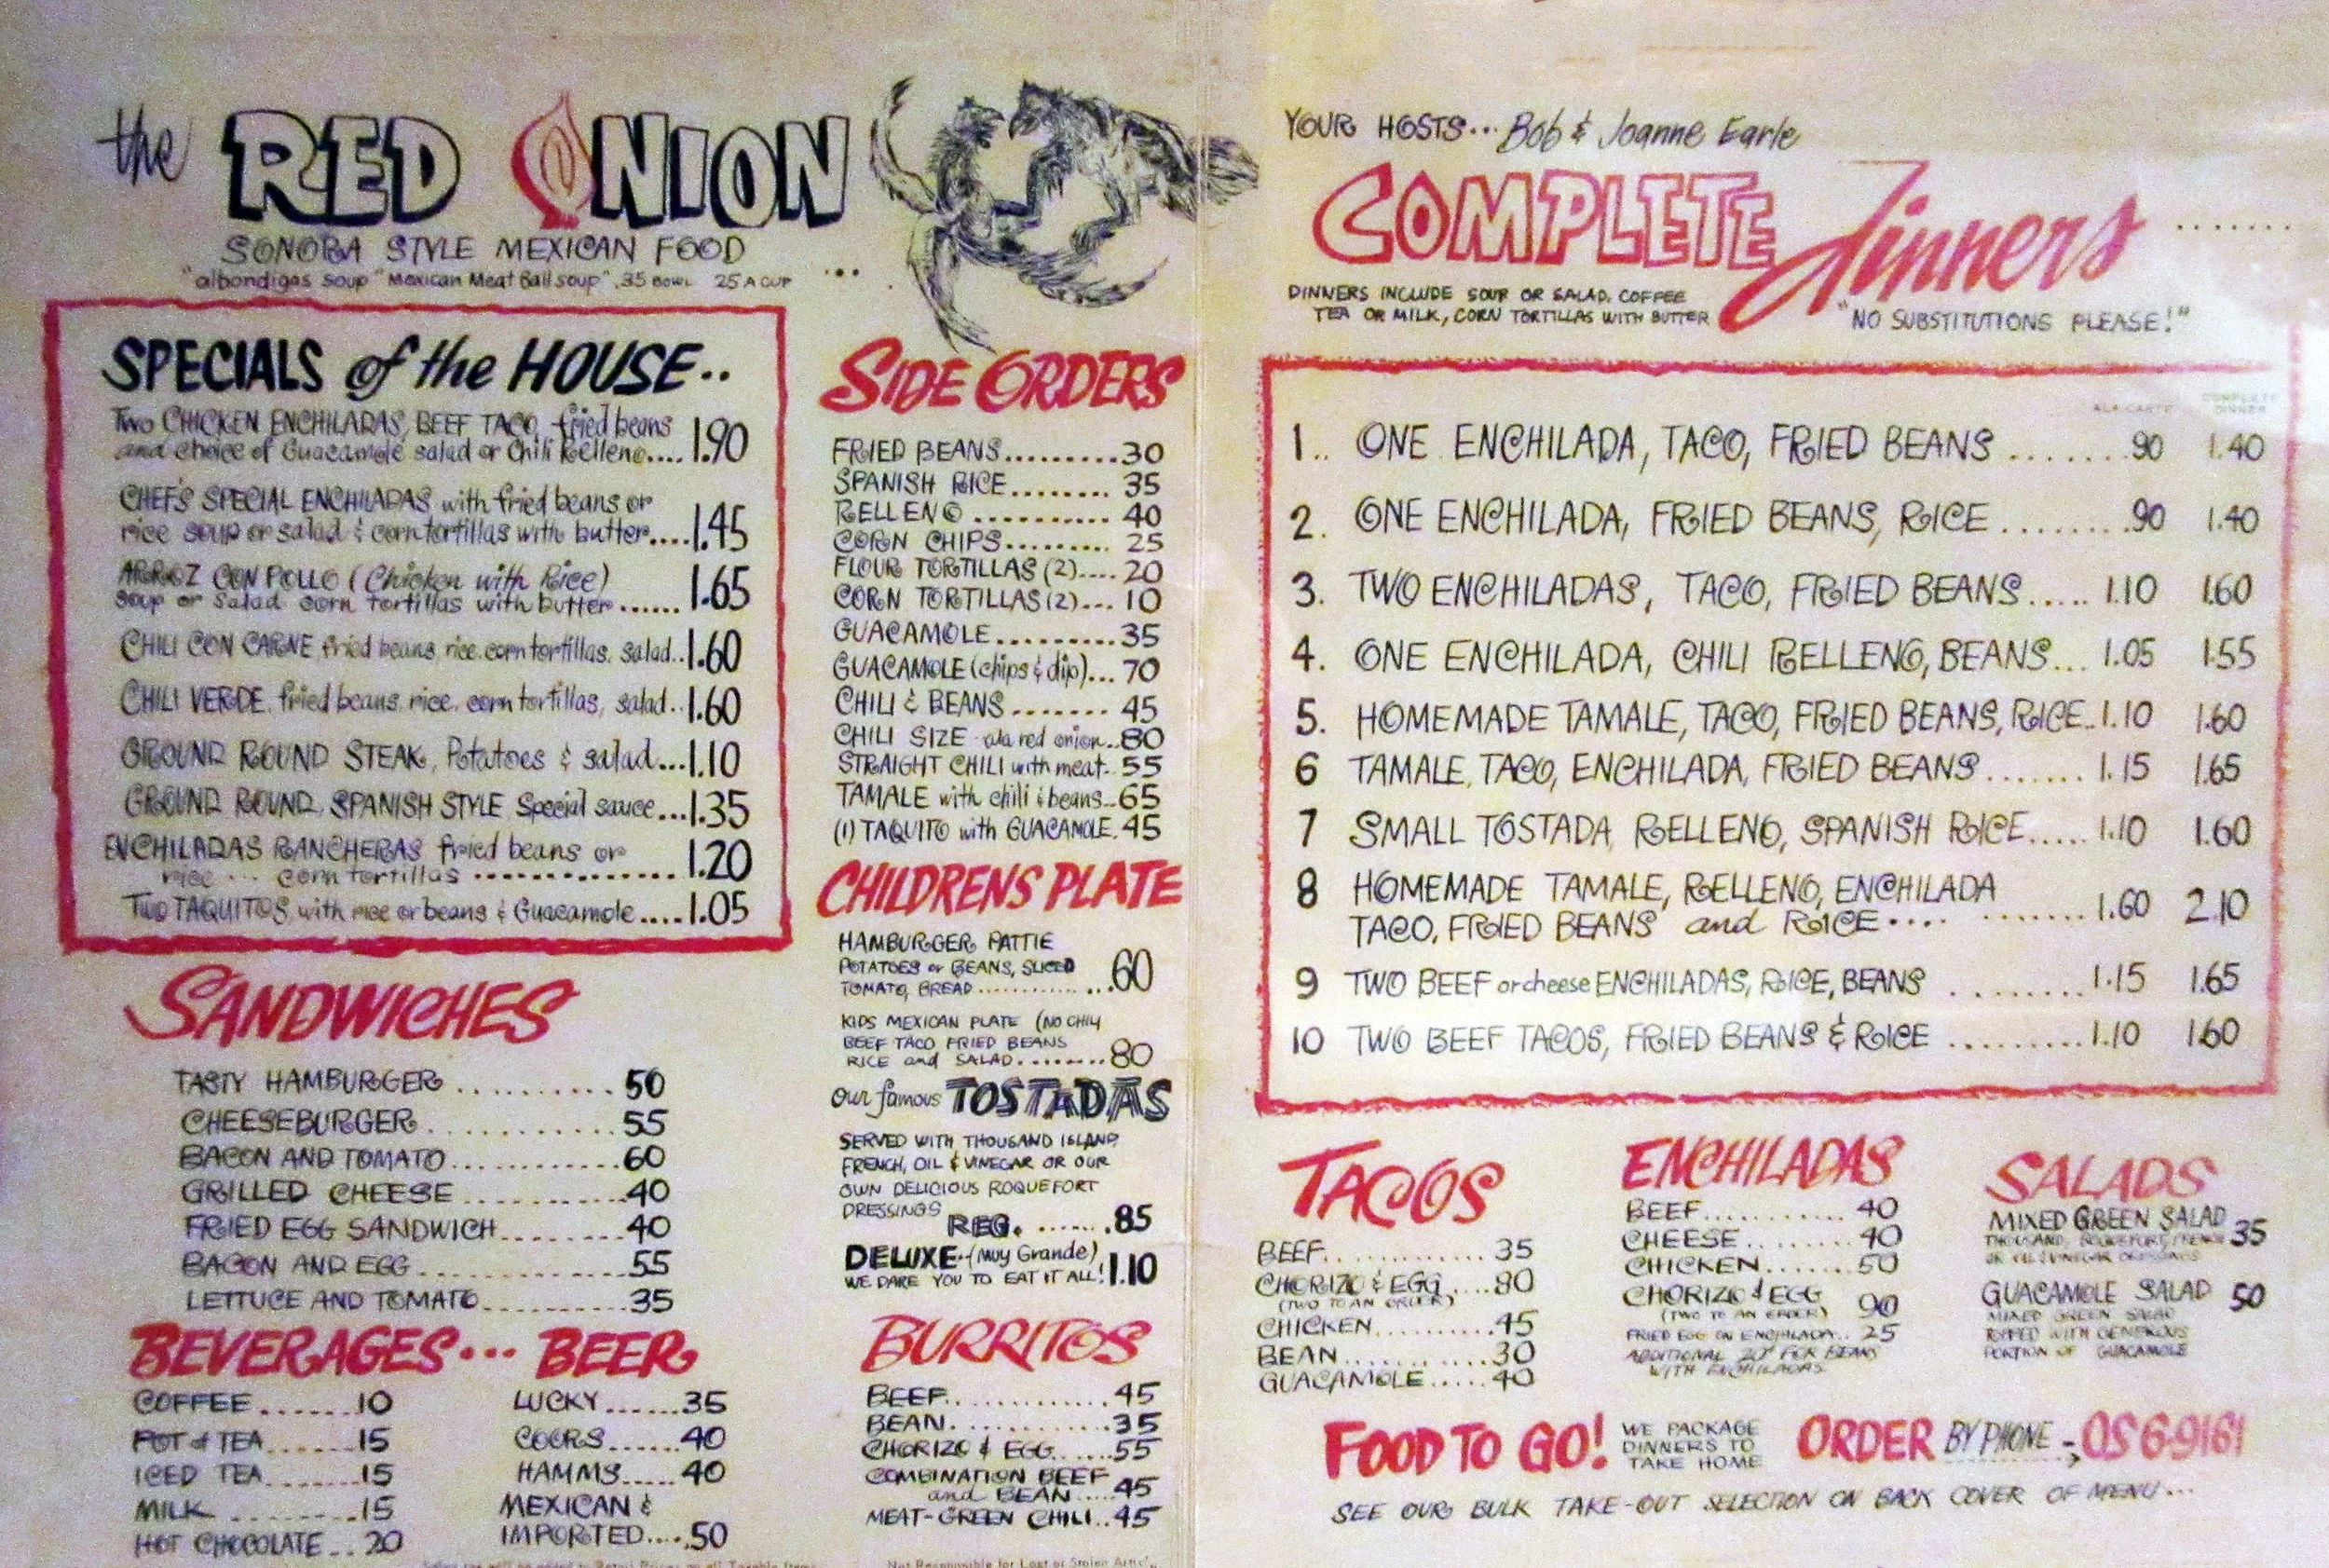 the RED ONION
SONORA STYLE MEXICAN FOOD
"albondigas soup" Mexican Meat Ball soup" .35 BOWL 25 A CUP ...
SPECIALS of the HOUSE..
Two CHICKEN ENCHILADAS, BEEF TACO, fried beans
and choice of Guacamole salad or Chili Relleno.... 1.90
CHEF'S SPECIAL ENCHILADAS with fried beans or
rice soup or salad & corn tortillas with butter.... 1.45
ARROZ CON POLLO (Chicken with Rice)
soup or salad corn tortillas with butter...... 1.65
CHILI CON CARNE fried beans, rice, corn tortillas, salad.. 1.60
CHILI VERDE, fried beans, rice, corn tortillas, salad.. 1.60
GROUND ROUND STEAK, Potatoes & salad... 1.10
GROUND ROUND, SPANISH STYLE Special sauce... 1.35
ENCHILADAS RANCHERAS fried beans or
rice ... corn tortillas .............. 1.20
TWO TAQUITOS, with rice or beans & Guacamole.... 1.05
SANDWICHES
TASTY HAMBURGER .......... 50
CHEESEBURGER ............ 55
BACON AND TOMATO ............ 60
GRILLED CHEESE .......... 40
FRIED EGG SANDWICH ........ 40
BACON AND EGG ............ 55
LETTUCE AND TOMATO .......... 35
BEVERAGES...
COFFEE ....... 10
POT of TEA ...... 15
ICED TEA ....... 15
MILK ......... 15
HOT CHOCOLATE .. 20
BEER
LUCKY ...... 35
COORS ...... 40
HAMMS ..... 40
MEXICAN &
IMPORTED.... .50
SIDE ORDERS
FRIED BEANS ......... 30
SPANISH RICE ........ 35
RELLENO .......... 40
CORN CHIPS ......... 25
FLOUR TORTILLAS (2) .... 20
CORN TORTILLAS (2) ... 10
GUACAMOLE ......... 35
GUACAMOLE (chips & dip) ... 70
CHILI & BEANS ....... 45
CHILI SIZE ala red onion .. 80
STRAIGHT CHILI with meat .. 55
TAMALE with chili & beans .. 65
(1) TAQUITO with GUACAMOLE . 45
CHILDRENS PLATE
HAMBURGER PATTIE
POTATOES or BEANS, SLICED
TOMATO, BREAD ............... .60
KIDS MEXICAN PLATE (NO CHILI
BEEF TACO FRIED BEANS
RICE and SALAD ........ 80
Our famous TOSTADAS
SERVED WITH THOUSAND ISLAND,
FRENCH, OIL & VINEGAR OR OUR
OWN DELICIOUS ROQUEFORT
DRESSINGS
REG. ...... .85
DELUXE (Muy Grande)
WE DARE YOU TO EAT IT ALL! 1.10
BURRITOS
BEEF ............. 45
BEAN ............. 35
CHORIZO & EGG ...... 55
COMBINATION BEEF
and BEAN .... 45
MEAT-GREEN CHILI .. 45
YOUR HOSTS... Bob & Joanne Earle
COMPLETE Dinners ........
DINNERS INCLUDE SOUP OR SALAD, COFFEE
TEA OR MILK, CORN TORTILLAS WITH BUTTER
"NO SUBSTITUTIONS PLEASE!"
ALA CARTE COMPLETE DINNER
1.. ONE ENCHILADA, TACO, FRIED BEANS ....... .90 1.40
2. ONE ENCHILADA, FRIED BEANS, RICE ........ .90 1.40
3. TWO ENCHILADAS, TACO, FRIED BEANS ..... 1.10 1.60
4. ONE ENCHILADA, CHILI RELLENO, BEANS ... 1.05 1.55
5. HOMEMADE TAMALE, TACO, FRIED BEANS, RICE .. 1.10 1.60
6 TAMALE, TACO, ENCHILADA, FRIED BEANS ....... 1.15 1.65
7 SMALL TOSTADA, RELLENO, SPANISH RICE ..... 1.10 1.60
8 HOMEMADE TAMALE, RELLENO, ENCHILADA
TACO, FRIED BEANS and RICE .... ....... 1.60 2.10
9 TWO BEEF or cheese ENCHILADAS, RICE, BEANS ........ 1.15 1.65
10 TWO BEEF TACOS, FRIED BEANS & RICE ......... 1.10 1.60
TACOS
BEEF ............ 35
CHORIZO & EGG .... 80
(TWO TO AN ORDER)
CHICKEN .......... 45
BEAN ............ 30
GUACAMOLE ..... 40
ENCHILADAS
BEEF .......... 40
CHEESE ....... 40
CHICKEN ....... 50
CHORIZO & EGG
(TWO TO AN ORDER) 90
FRIED EGG ON ENCHILADA .. 25
ADDITIONAL 20¢ FOR BEANS
WITH ENCHILADAS
SALADS
MIXED GREEN SALAD 35
THOUSAND, ROQUEFORT, FRENCH
OR OIL & VINEGAR DRESSINGS
GUACAMOLE SALAD 50
MIXED GREEN SALAD
TOPPED WITH GENEROUS
PORTION OF GUACAMOLE
FOOD TO GO!
WE PACKAGE
DINNERS TO
TAKE HOME
ORDER BY PHONE - OS 6-9161
SEE OUR BULK TAKE-OUT SELECTION ON BACK COVER OF MENU...
Sales tax will be added to Retail Prices on all Taxable Items
Not Responsible for Lost or Stolen